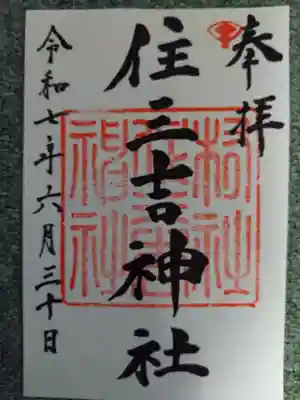 奉拝
住三吉神社
令和七年六月三十日